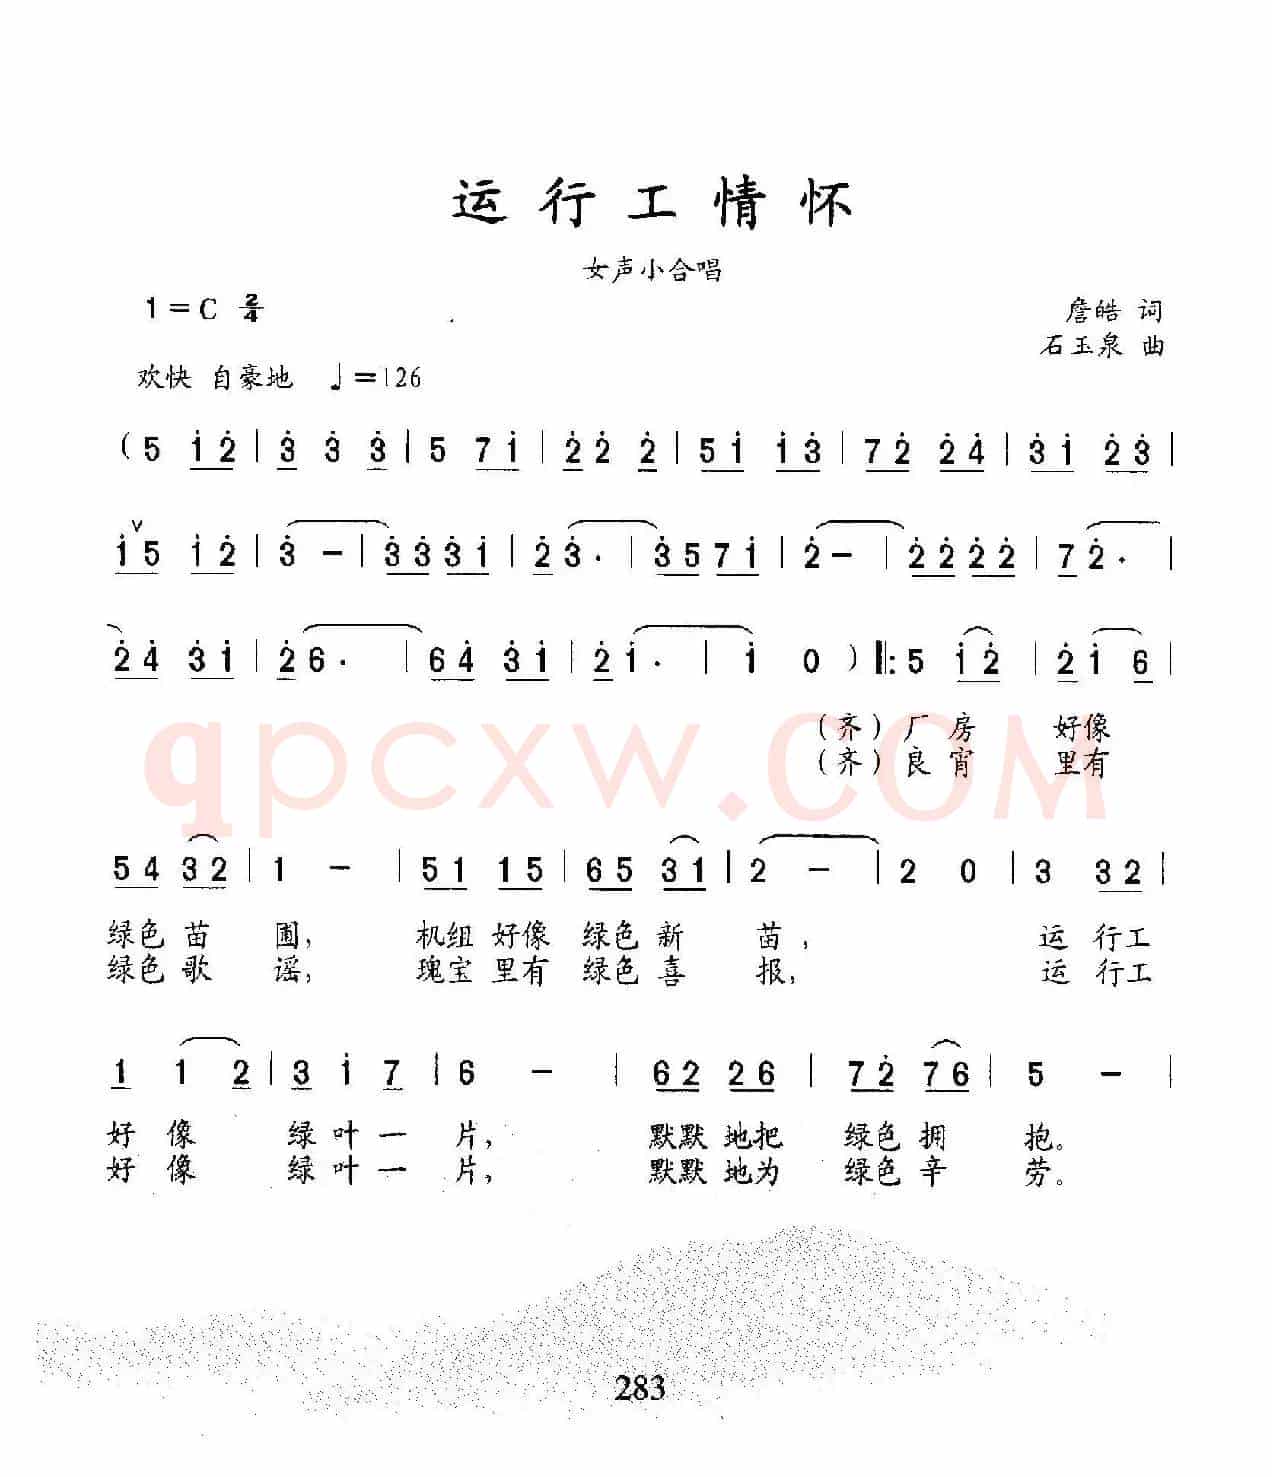 运行工情怀
女声小合唱
1=C 2/4
詹皓 词
石玉泉 曲
欢快 自豪地 ♩=126
(5 i̇ 2̇ | 3̇ 3̇ 3̇ | 5 7 i̇ | 2̇ 2̇ 2̇ | 5 i̇ i̇ 3̇ | 7 2̇ 2̇ 4̇ | 3̇ i̇ 2̇ 3̇ |
i̇ 5 i̇ 2̇ | 3̇ - | 3̇ 3̇ 3̇ i̇ | 2̇ 3̇· | 3̇ 5 7 i̇ | 2̇ - | 2̇ 2̇ 2̇ 2̇ | 7 2̇· |
2̇ 4̇ 3̇ i̇ | 2̇ 6· | 6 4̇ 3̇ i̇ | 2̇ i̇· | i̇ 0 ) ‖: 5 i̇ 2̇ | 2̇ i̇ 6 |
(齐)厂房 好像
(齐)良宵 里有
qpcxw.COM
5 4 3 2 | 1 - | 5 1 1 5 | 6 5 3 1 | 2 - | 2 0 | 3 3 2 |
绿色 苗 圃, 机组 好像 绿色 新 苗, 运 行工
绿色 歌 谣, 瑰宝 里有 绿色 喜 报, 运 行工
1 1 2 | 3 i̇ 7 | 6 - | 6 2 2 6 | 7 2̇ 7 6 | 5 - |
好 像 绿 叶 一 片, 默默 地把 绿色 拥 抱。
好 像 绿 叶 一 片, 默默 地为 绿色 辛 劳。
283